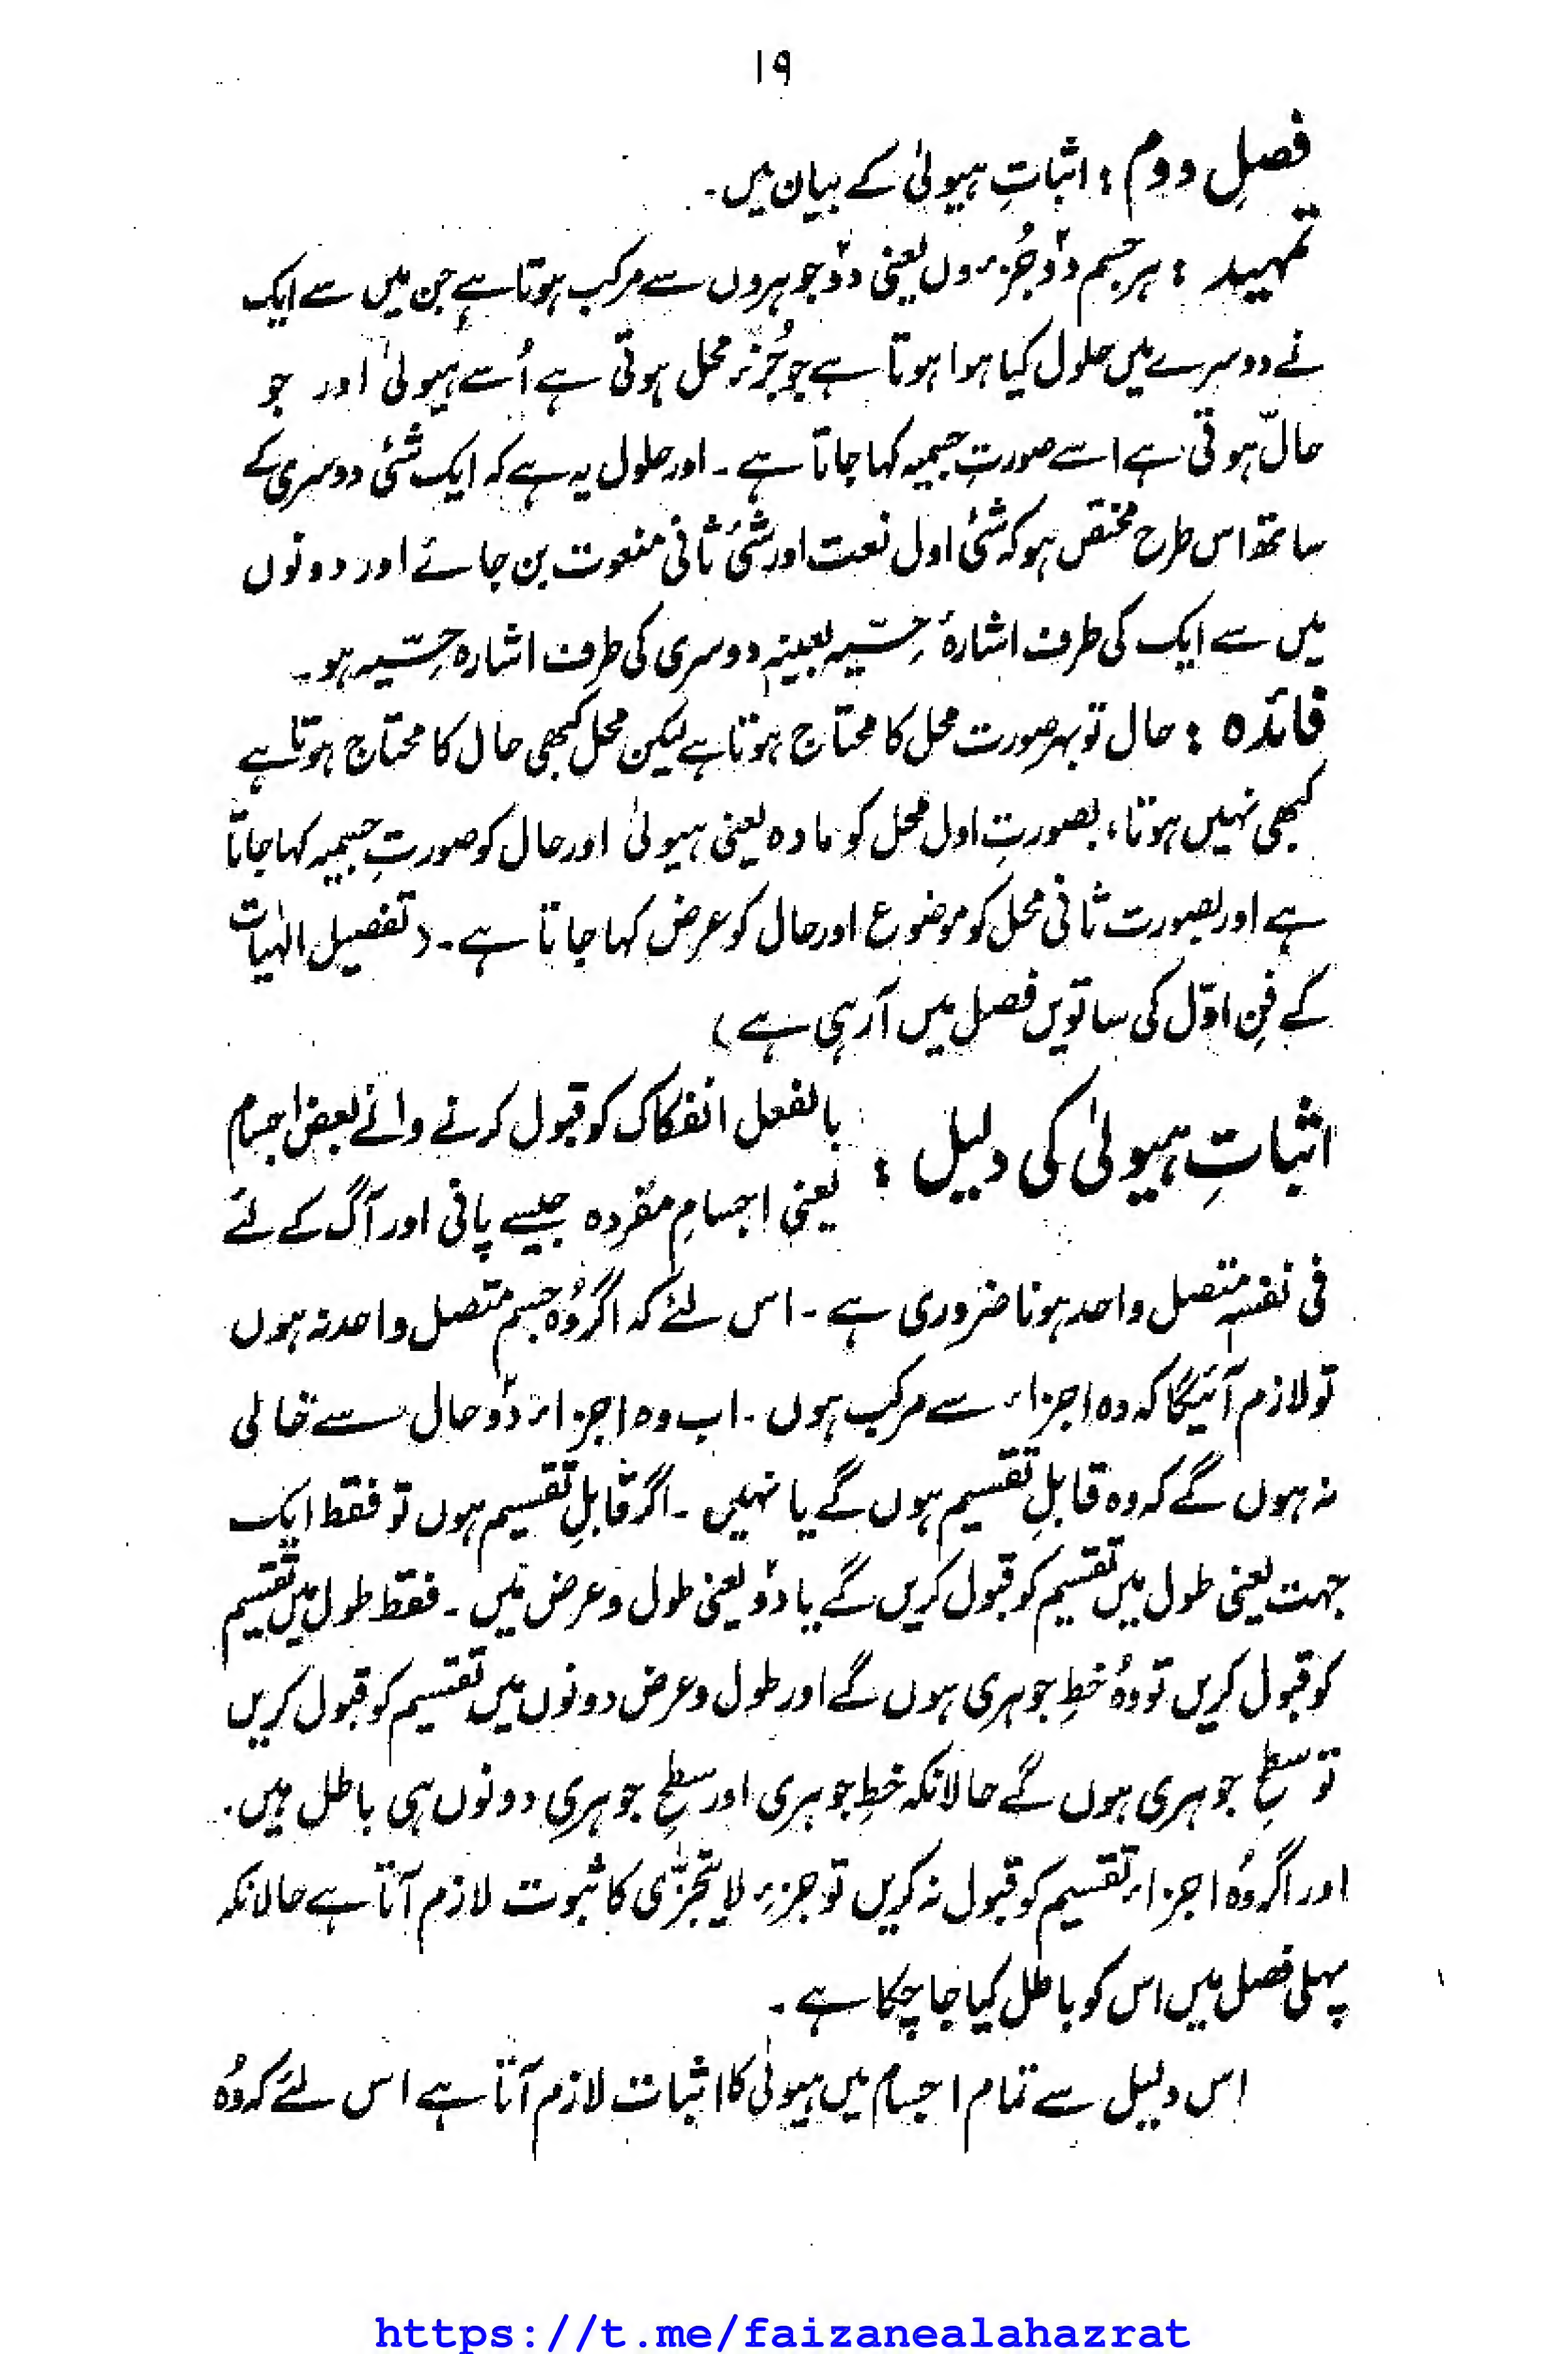 ۱۹
فصلِ دوم : اثباتِ ہیولیٰ کے بیان میں۔
تمہید : ہر جسم دوؔ جُزءوں یعنی دوؔ جوہروں سے مرکب ہوتا ہے جن میں سے ایک
نے دوسرے میں حلول کیا ہوا ہوتا ہے جو جُزء محل ہوتی ہے اُسے ہیولیٰ اور جو
حالّ ہوتی ہے اسے صورتِ جسمیہ کہا جاتا ہے ۔ اور حلول یہ ہے کہ ایک شئی دوسری کے
ساتھ اس طرح مختص ہو کہ شئی اول نعت اور شئی ثانی منعوت بن جائے اور دونوں
میں سے ایک کی طرف اشارۂ حِسّیہ بعینہٖ دوسری کی طرف اشارہ حِسّیہ ہو۔
فائدہ : حال تو بہر صورت محل کا محتاج ہوتا ہے لیکن محل کبھی حال کا محتاج ہوتا ہے
کبھی نہیں ہوتا، بصورتِ اول محل کو مادہ یعنی ہیولیٰ اور حال کو صورتِ جسمیہ کہا جاتا
ہے اور بصورت ثانی محل کو موضوع اور حال کو عرض کہا جاتا ہے۔ (تفصیل الٰہیات
کے فنِ اوّل کی ساتویں فصل میں آرہی ہے)
اثباتِ ہیولیٰ کی دلیل : بالفعل انفکاک کو قبول کرنے والے بعض اجسام
یعنی اجسامِ مفردہ جیسے پانی اور آگ کے لئے
فی نفسہٖ متصل واحد ہونا ضروری ہے ۔ اس لئے کہ اگر وُہ جسم متصل واحد نہ ہوں
تو لازم آئیگا کہ وہ اجزاء سے مرکب ہوں ۔ اب وہ اجزاء دوؔ حال سے خالی
نہ ہوں گے کہ وہ قابلِ تقسیم ہوں گے یا نہیں ۔ اگر قابلِ تقسیم ہوں تو فقط ایک
جہت یعنی طول میں تقسیم کو قبول کریں گے یا دوؔ یعنی طول و عرض میں ۔ فقط طول میں تقسیم
کو قبول کریں تو وہُ خطِ جوہری ہوں گے اور طول و عرض دونوں میں تقسیم کو قبول کریں
تو سطحِ جوہری ہوں گے حالانکہ خطِ جوہری اور سطحِ جوہری دونوں ہی باطل ہیں۔
اور اگر وُہ اجزاء تقسیم کو قبول نہ کریں تو جزءِ لا یتجزّٰی کا ثبوت لازم آتا ہے حالانکہ
پہلی فصل میں اس کو باطل کیا جا چکا ہے ۔
اس دلیل سے تمام اجسام میں ہیولیٰ کا اثبات لازم آتا ہے اس لئے کہ وُہ
https://t.me/faizanealahazrat